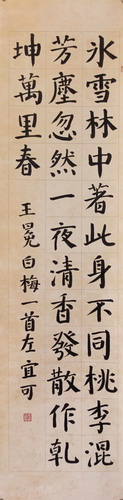 冰雪林中著此身不同桃李混
芳塵忽然一夜清香發散作乹
坤萬里春
王冕白梅一首左宜可